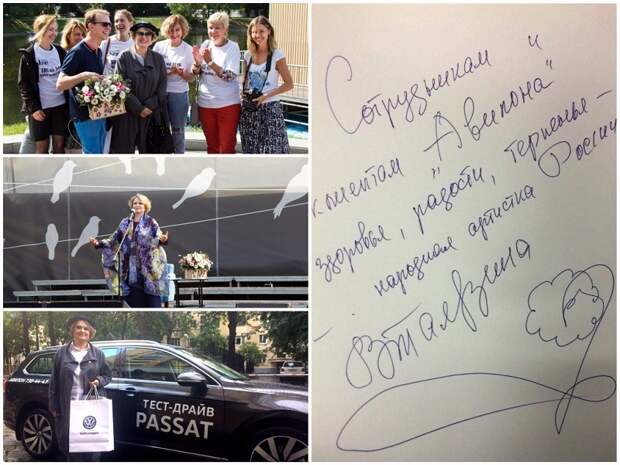 Сотрудникам и
клиентам „Авилона"
здоровья, радости, терпенья –
народная артистка России
– ВТалызина
ТЕСТ-ДРАЙВ
PASSAT